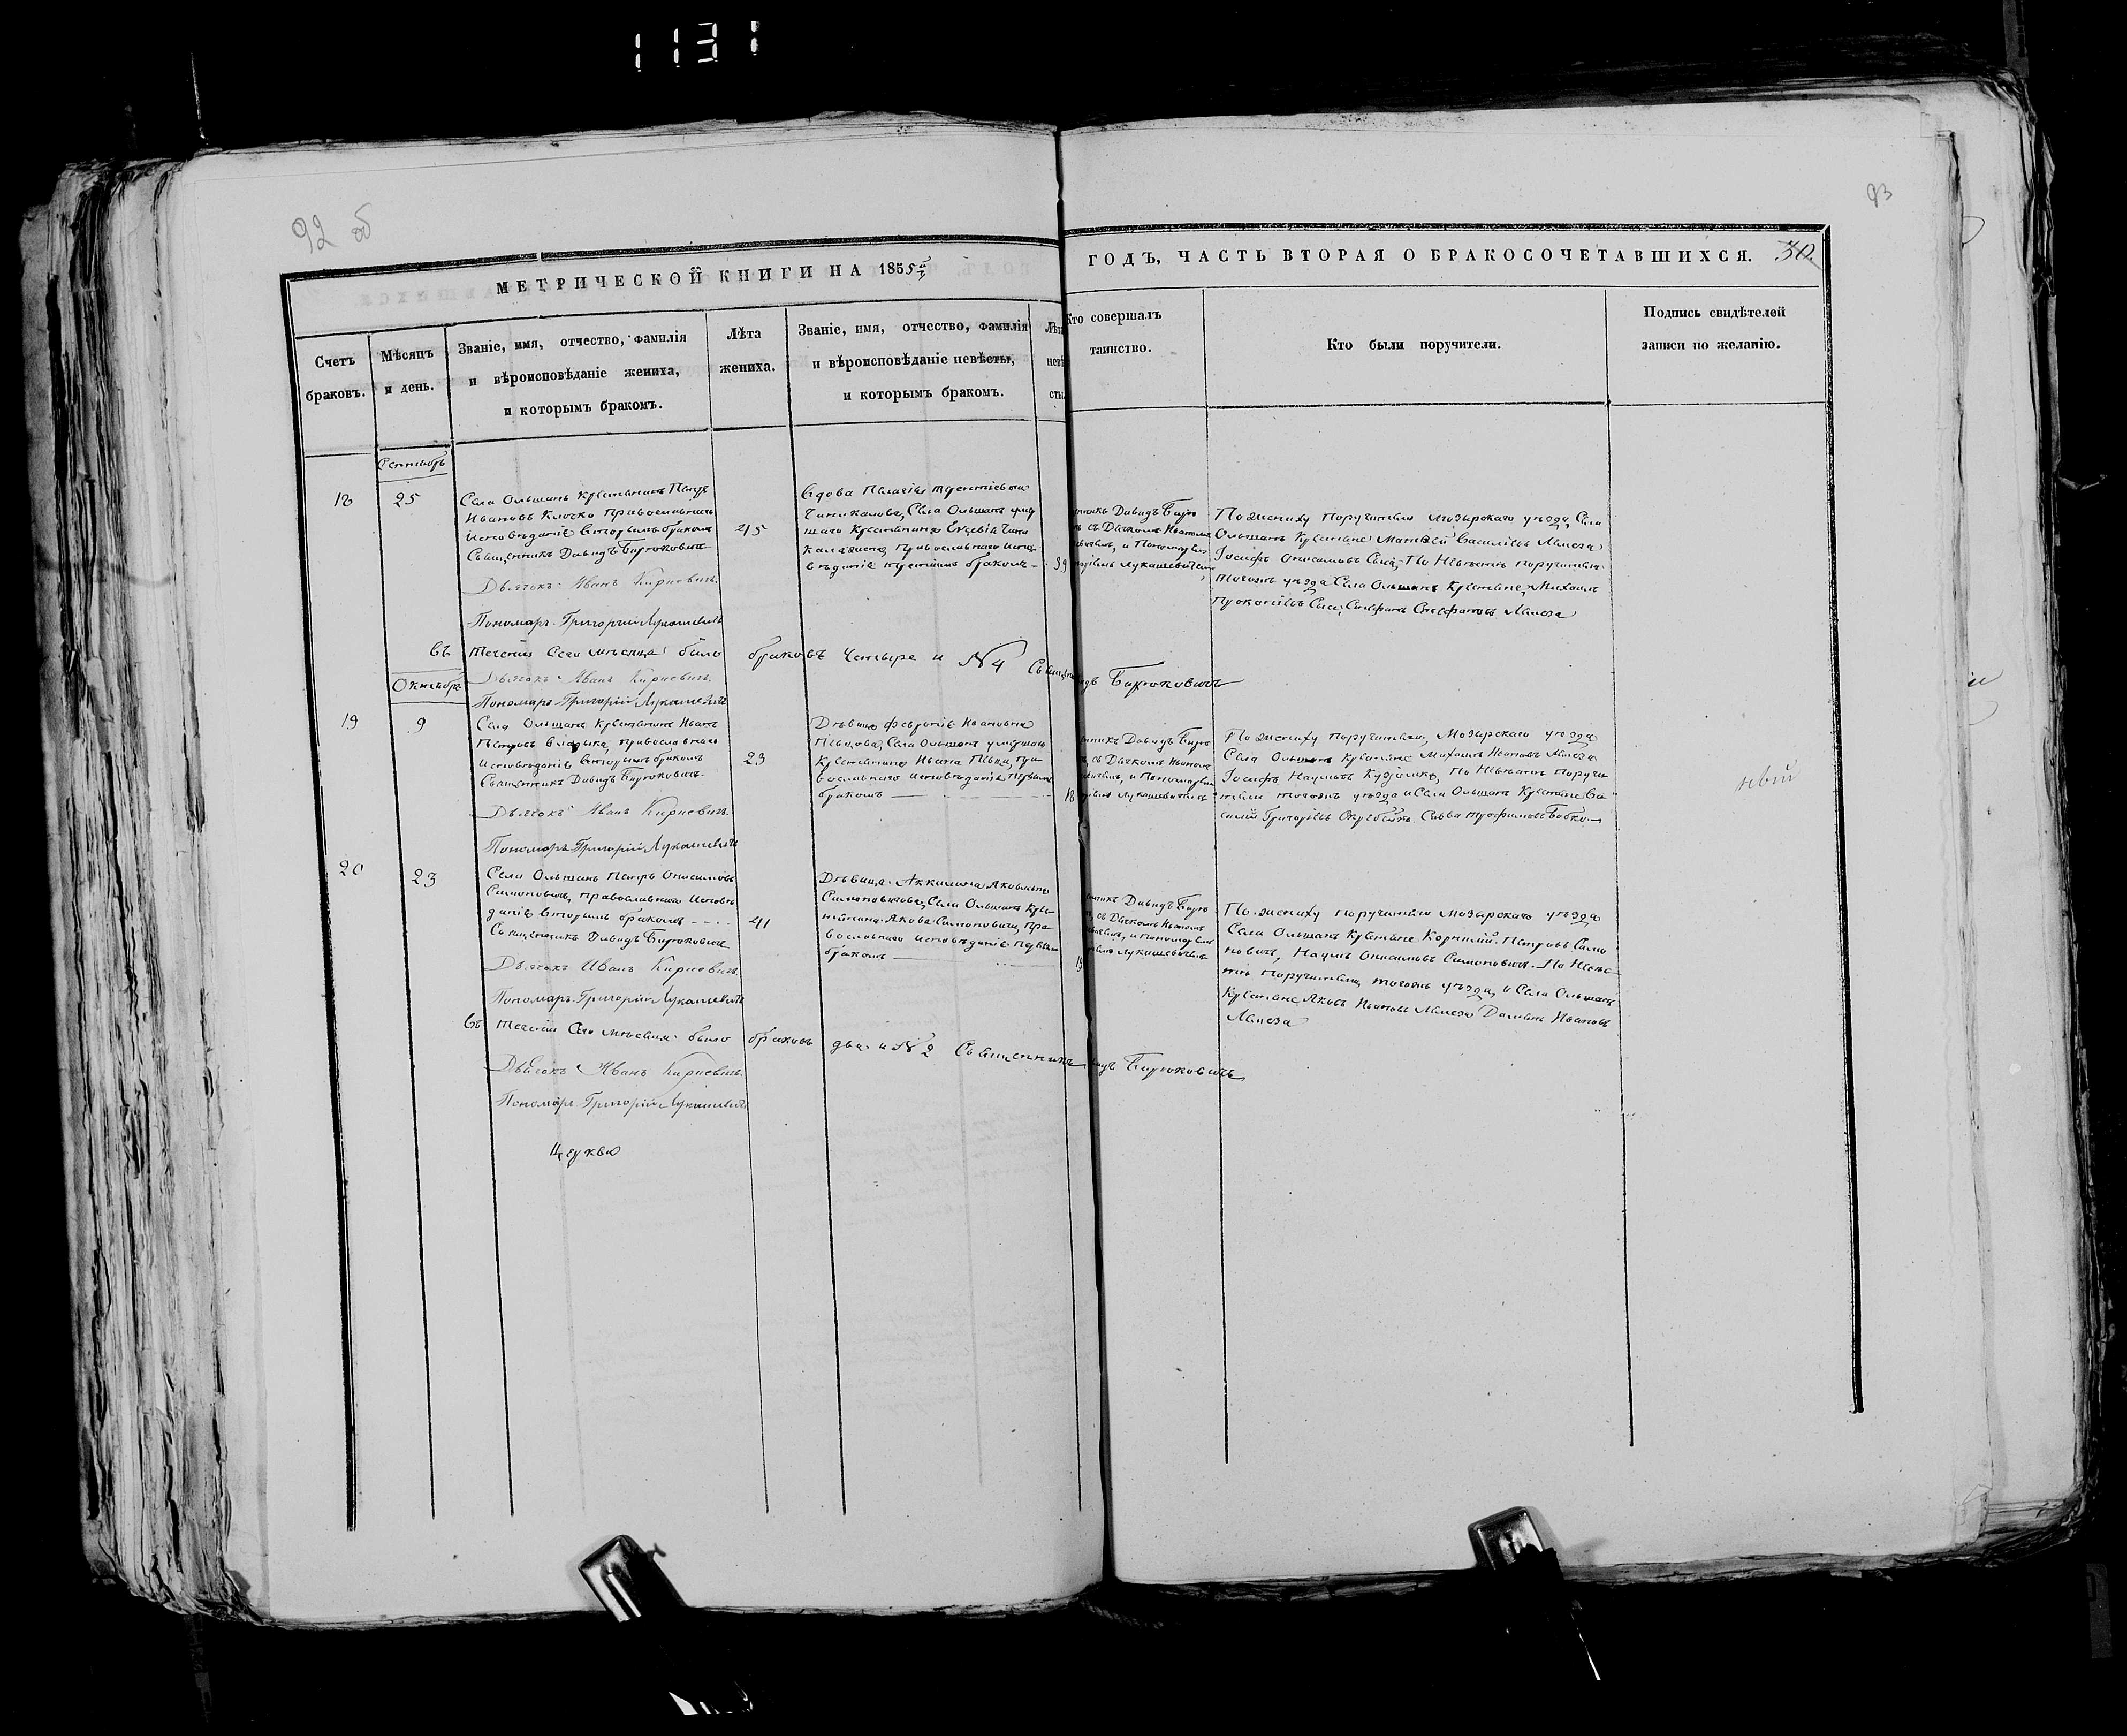 1131
92 об
93
МЕТРИЧЕСКОЙ КНИГИ НА 1855й
ГОДЪ, ЧАСТЬ ВТОРАЯ О БРАКОСОЧЕТАВШИХСЯ. 30.
Счетъ
браковъ.
Мѣсяцъ
и день.
Званіе, имя, отчество, фамилія
и вѣроисповѣданіе жениха,
и которымъ бракомъ.
Лѣта
жениха.
Званіе, имя, отчество, фамилія
и вѣроисповѣданіе невѣсты,
и которымъ бракомъ.
Лѣта
невѣ
сты.
Кто совершалъ
таинство.
Кто были поручители.
Подпись свидѣтелей
записи по желанію.
Сентябрь
18
25
Села Ольшанъ Крестьянинъ Петръ
Ивановъ Клочко православнаго
исповѣданія вторымъ бракомъ
Священникъ Давидъ Бирюковичъ
Дьячокъ Иванъ Кирневичъ.
Пономарь Григорій Лукашевичъ
45
Вдова Пелагія Терентіевна
Села Ольшанъ умер
шаго Крестьянина Евсевія
православнаго испо
вѣданія третьимъ бракомъ
39
Давидъ Бирю
съ Дьячкомъ Иваномъ
и Пономаремъ
Лукашевичемъ
По жениху поручители Мозырскаго уѣзда, Села
Ольшанъ Крестьяне Матвѣй Василіевъ
Іосифъ Онисимовъ По Невѣстѣ поручители
тогожъ уѣзда Села Ольшанъ Крестьяне, Михаилъ
Прокопіевъ Стефанъ Стефановъ
въ теченіи сего мѣсяца было браковъ четыре и №4 Священ дъ Бирюковичъ
Дьячокъ Иванъ Кирневичъ.
Пономарь Григорій Лукашевичъ
Октябрь
19
9
Села Ольшанъ Крестьянинъ Иванъ
Петровъ православнаго
исповѣданія вторымъ бракомъ
Священникъ Давидъ Бирюковичъ.
Дьячокъ Иванъ Кирневичъ.
Пономарь Григорій Лукашевичъ
23
Дѣвица Февронія Ивановна
Села Ольшанъ умершаго
Крестьянина Ивана пра
вославнаго исповѣданія первымъ
бракомъ
18
Давидъ Бирю
съ Дьячкомъ Иваномъ
и Пономаремъ
Лукашевичемъ
По жениху поручители, Мозырскаго уѣзда
Села Ольшанъ Крестьяне Михаилъ Ивановъ
Іосифъ Наумовъ По Невѣстѣ поручи
тели тогожъ уѣзда и Села Ольшанъ Крестьяне Ва
силій Григоріевъ Савва Трофимовъ Бобко
20
23
Села Ольшанъ Петръ Онисимовъ
Симоновичъ, православнаго исповѣ
данія вторымъ бракомъ
Священникъ Давидъ Бирюковичъ
Дьячокъ Иванъ Кирневичъ
Пономарь Григорій Лукашевичъ
41
Дѣвица Аккилина Яковлева
Симоновичова, Села Ольшанъ Кре
стьянина Якова Симоновича, пра
вославнаго исповѣданія первымъ
бракомъ
19
Давидъ Бирю
съ Дьячкомъ Иваномъ
и Пономаремъ
Лукашевичемъ
По жениху поручители Мозырскаго уѣзда
Села Ольшанъ Крестьяне Корнилій Петровъ Симо
новичъ, Наумъ Онисимовъ Симоновичъ. По Невѣс
тѣ поручители, тогожъ уѣзда, и Села Ольшанъ
Крестьяне Яковъ Ивановъ Даміанъ Ивановъ
въ теченіи сего мѣсяца было браковъ два и №2 Священникъ идъ Бирюковичъ
Дьячокъ Иванъ Кирневичъ.
Пономарь Григорій Лукашевичъ